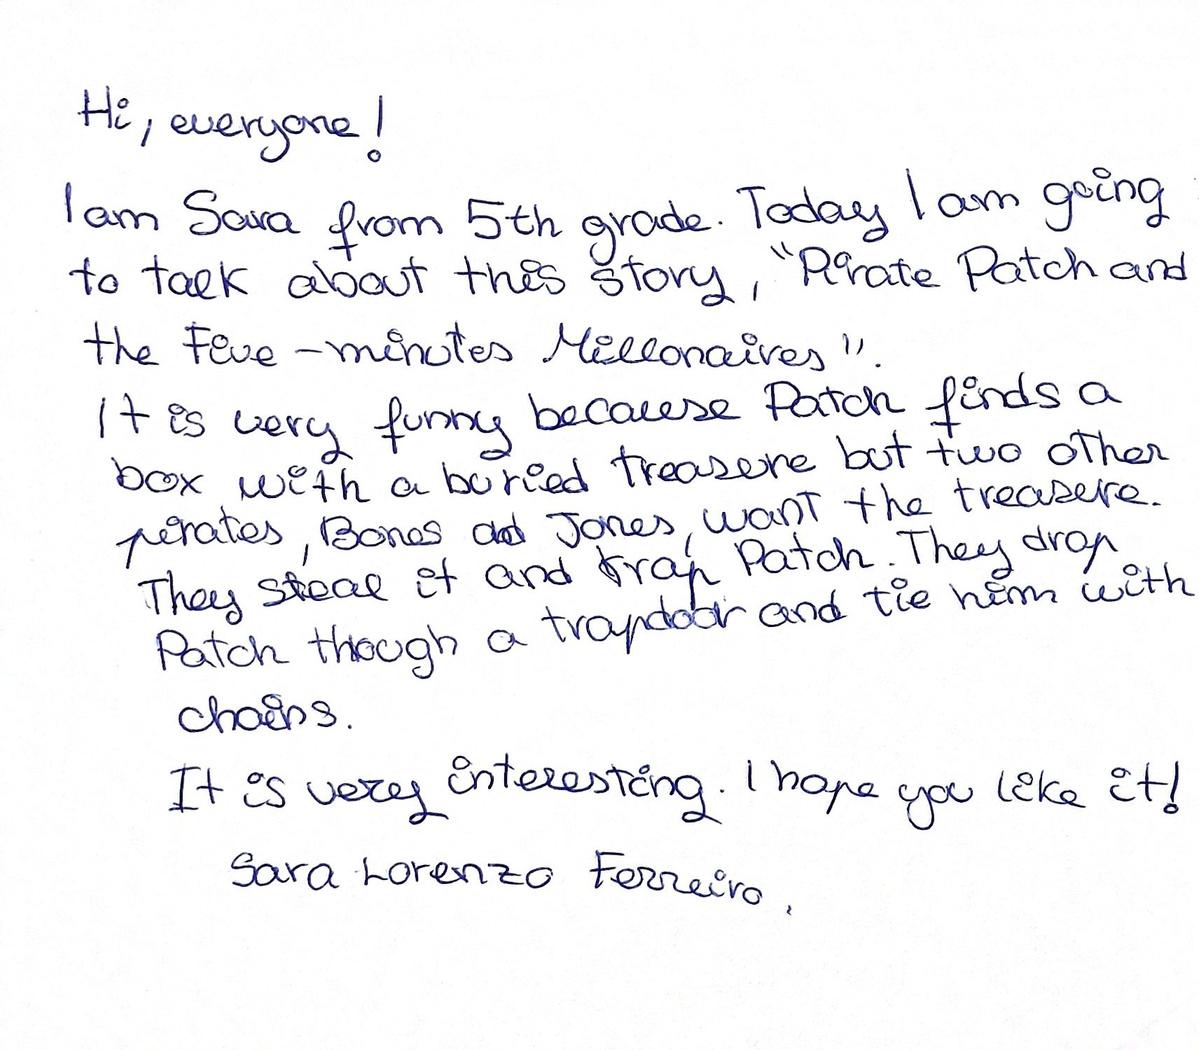 Hi, everyone!
I am Sara from 5th grade. Today I am going
to talk about this story, "Pirate Patch and
the Five-minutes Millonaires".
It is very funny because Patch finds a
box with a buried treasure but two other
pirates, Bones and Jones, want the treasure.
They steal it and trap Patch. They drop
Patch though a trapdoor and tie him with
chains.
It is very interesting. I hope you like it!
Sara Lorenzo Ferreiro.